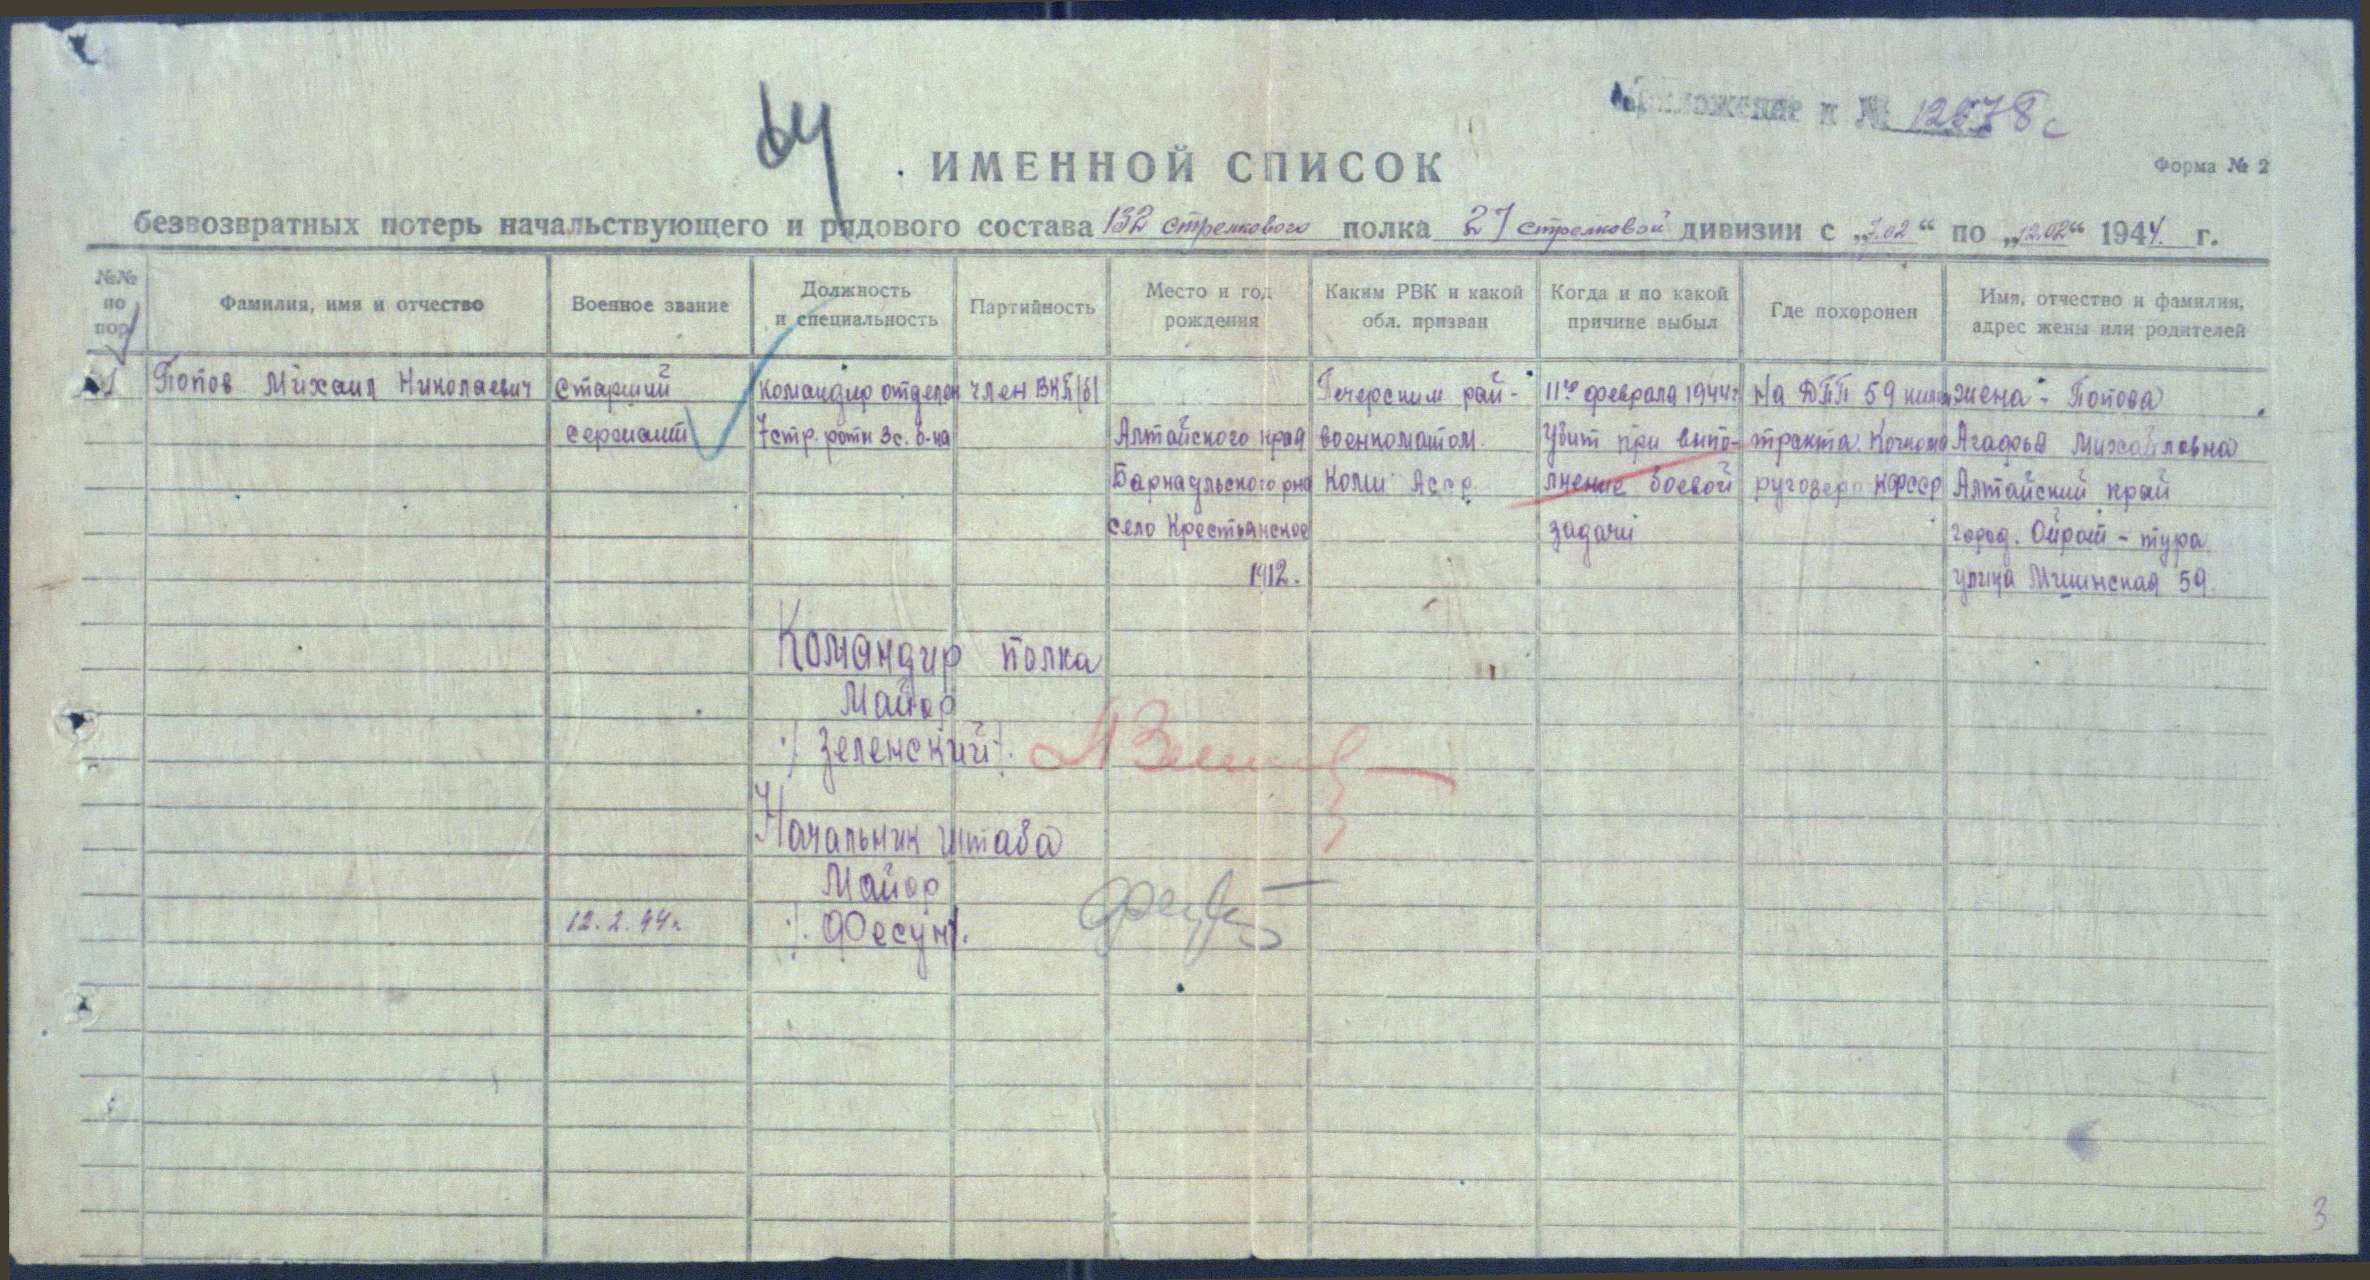 Приложение к № 12678с
ИМЕННОЙ СПИСОК
Форма № 2
безвозвратных потерь начальствующего и рядового состава 132 стрелкового полка 27 стрелковой дивизии с „7.02“ по „12.02“ 1944 г.
№№ по пор.
Фамилия, имя и отчество
Военное звание
Должность
и специальность
Партийность
Место и год
рождения
Каким РВК и какой
обл. призван
Когда и по какой
причине выбыл
Где похоронен
Имя, отчество и фамилия,
адрес жены или родителей
1
Попов Михаил Николаевич
старший
сержант
командир отделен
7 стр. роты 3 с. б-на
член ВКП/б/
Алтайского края
Барнаульского р-на
село Крестьянское
1912.
Печерским рай-
военкоматом.
Коми Асср
11го февраля 1944г
Убит при выпо-
лнение боевой
задачи
На ДПП 59 килом
тракта. Кочкома
ругозеро КФССР
жена - Попова
Агафья Михайловна
Алтайский край
город. Ойрот-тура
улица 59.
Командир полка
Майор
/Зеленский/.
Начальник штаба
Майор
/Фесун/.
12.2.44г.
3